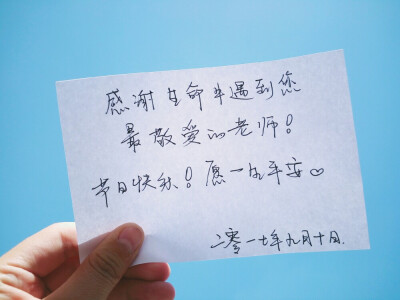 感谢生命中遇到您
最敬爱的老师！
节日快乐！愿一切平安♡
二零一七年九月十日.